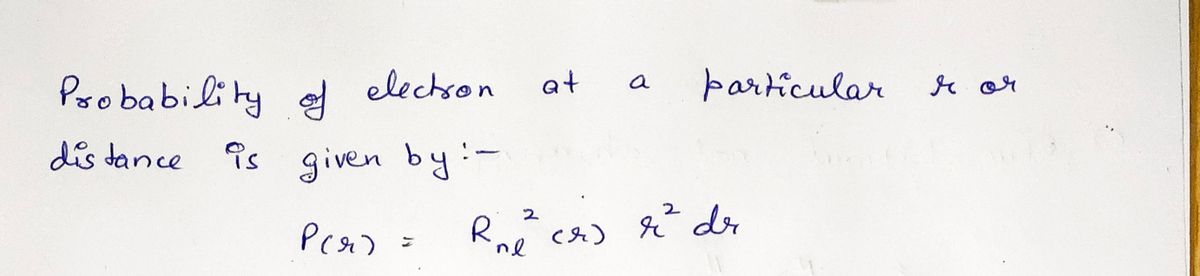 Probability of electron at a particular r or
distance is given by :-
P(r) = Rnl² (r) r² dr